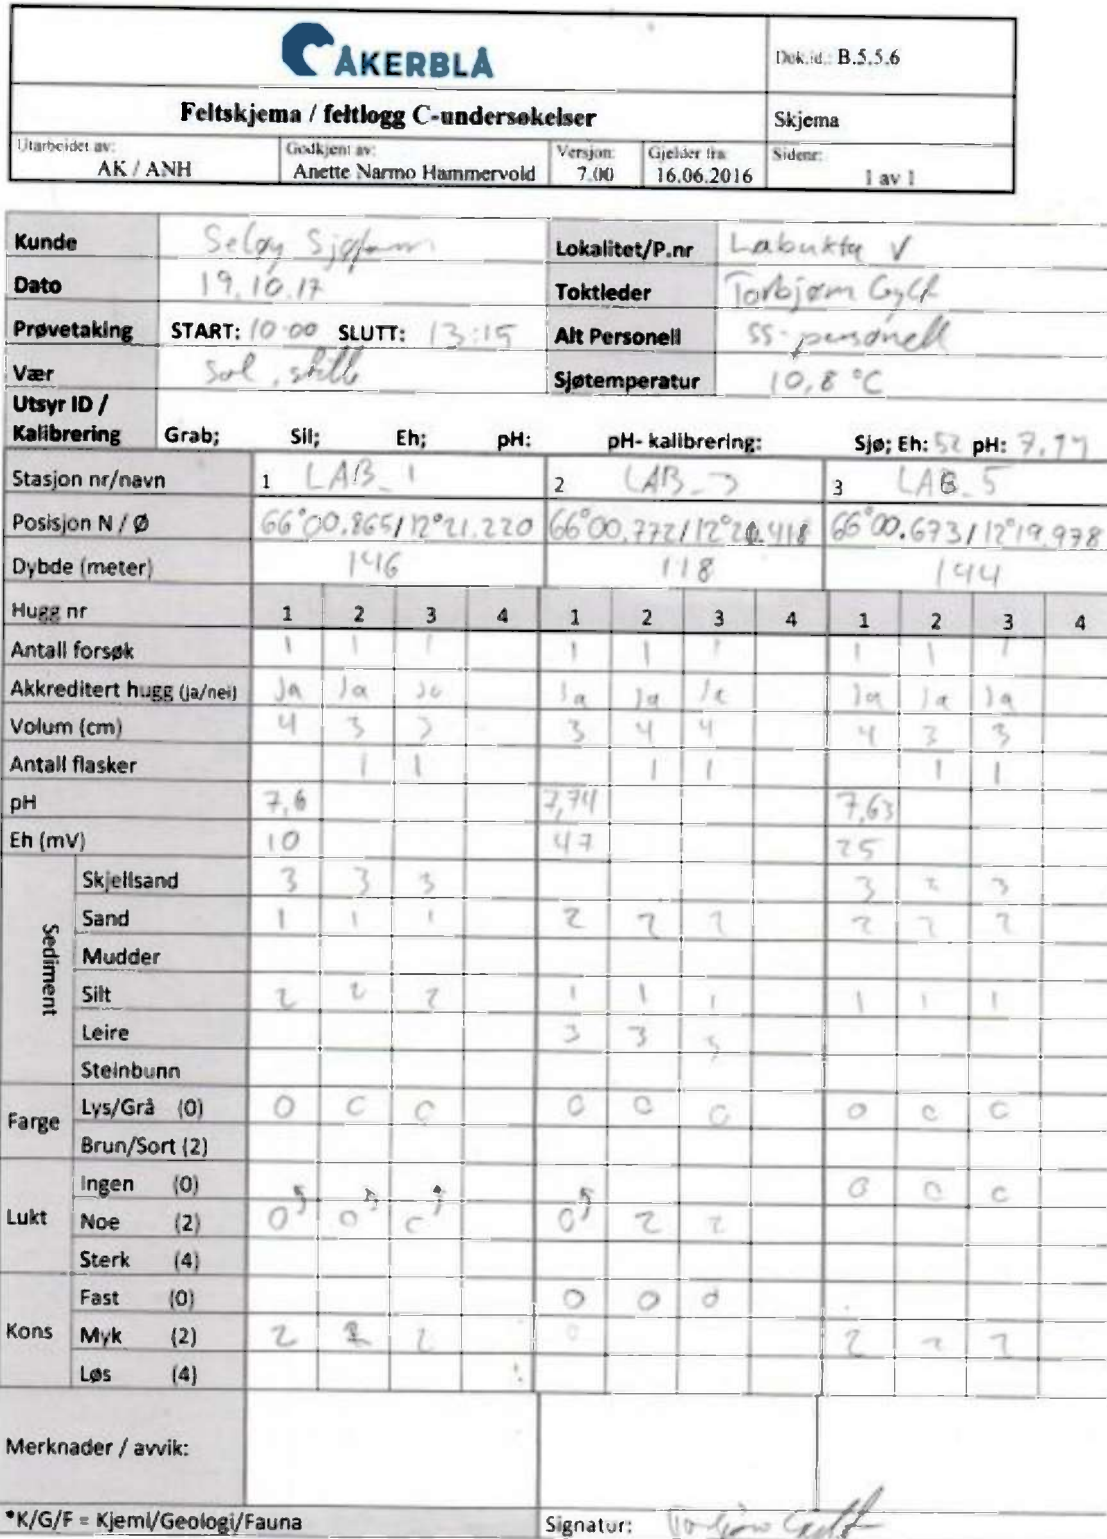 ÅKERBLÅ
Dok.id.: B.5.5.6
Feltskjema / feltlogg C-undersøkelser
Skjema
Utarbeidet av: Godkjent av: Versjon: Gjelder fra: Sidenr:
AK / ANH Anette Narmo Hammervold 7.00 16.06.2016 1 av 1
Kunde Seløy Sjøfarm Lokalitet/P.nr Labukta V
Dato 19.10.17 Toktleder Torbjørn
Prøvetaking START: 10:00 SLUTT: 13:15 Alt Personell SS-personell
Vær Sol, stille Sjøtemperatur 10,8 °C
Utsyr ID /
Kalibrering Grab; Sil; Eh; pH: pH- kalibrering: Sjø; Eh: 52 pH:
Stasjon nr/navn 1 LAB_1 2 LAB_3 3 LAB_5
Posisjon N / Ø 66°00.865/12°21.220 66°00.772/12°20.418 66°00.673/12°19.978
Dybde (meter) 146 118 144
Hugg nr 1 2 3 4 1 2 3 4 1 2 3 4
Antall forsøk 1 1 1 1 1 1 1 1 1
Akkreditert hugg (ja/nei) Ja Ja Ja Ja Ja Ja Ja Ja Ja
Volum (cm) 4 3 3 3 4 4 4 3 3
Antall flasker 1 1 1 1 1 1
pH 7,6 7,74 7,63
Eh (mV) 10 47 25
Sediment
Skjellsand 3 3 3 3 2 3
Sand 1 1 1 2 2 2 2 2 2
Mudder
Silt 2 2 2 1 1 1 1 1 1
Leire 3 3 3
Steinbunn
Farge
Lys/Grå (0) 0 0 0 0 0 0 0 0 0
Brun/Sort (2)
Lukt
Ingen (0) 0 0 0
Noe (2) 0 0 0 0 2 2
Sterk (4)
Kons
Fast (0) 0 0 0
Myk (2) 2 2 2 0 2 2 2
Løs (4)
Merknader / avvik:
*K/G/F = Kjemi/Geologi/Fauna Signatur: